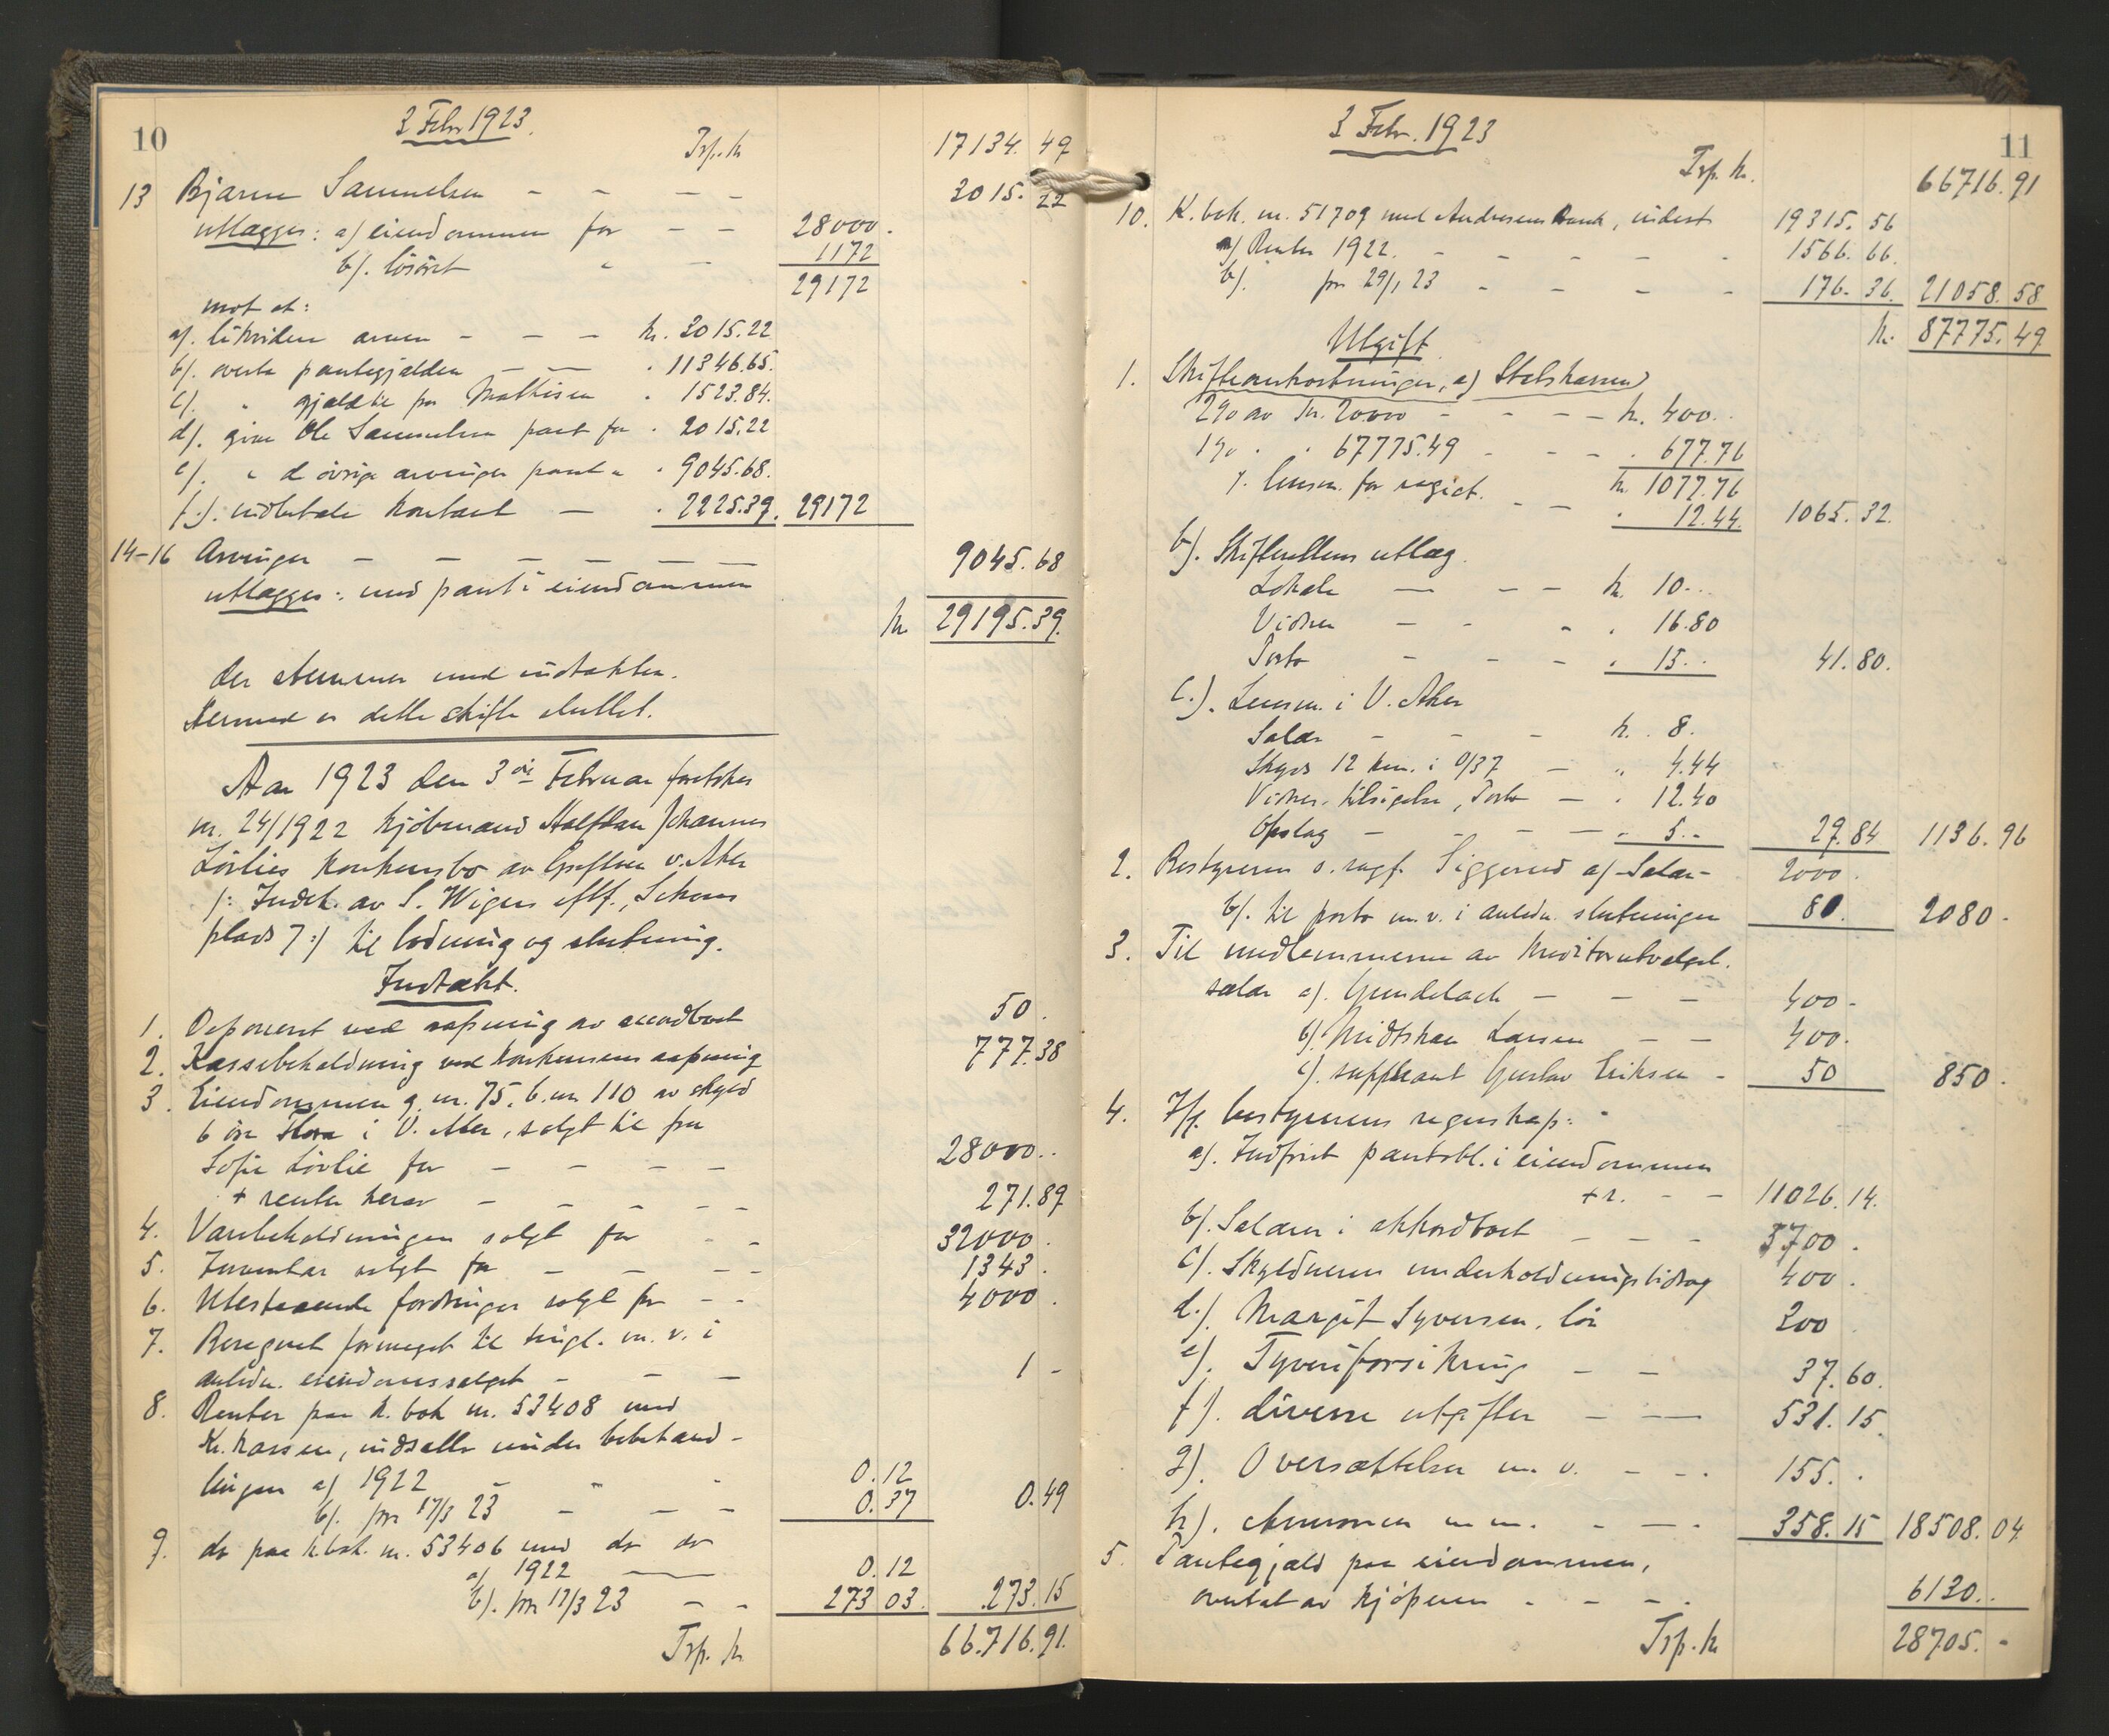 10
3 Febr 1923.
Trp. kr 17134. 49
13 Bjarne Samuelsen - - - - 3015. 22
utlægges: a) eiendommen for - - 28000.
b). løsøret " - 1172
29172
mot at:
a). likvidere arven - - - kr. 3015.22
b). overta pantegjælden - - . 11346.65.
c). " gjæld til fru Mathisen . 1523.84.
d). give Ole Samuelsen pant for . 2015.22
e). " de øvrige arvinger pant " . 9045.68.
f.). indbetale kontant - . 2225.39. 29172
14-16 Arvinger - - - - - - 9045. 68
utlægges: med pant i eiendommen
kr. 29195.39.
der stemmer med indtækten.
Hermed er dette skifte sluttet.
Aar 1923 den 3die Februar foretokes
nr. 24/1922 kjøbmand Halfdan Johannes
Løvlies konkursbo av Grefsen v. Aker
/: Indeh. av S. Wigers eftf., Schous
plads 7:/ til lodning og slutning.
Indtækt.
1. Deponeret ved aapning av akkordboet 50.
2. Kassebeholdning ved konkursens aapning 777.38
3. Eiendommen g. nr. 75, b. nr. 110 av skyld
6 øre Flora i V. Aker, solgt til fru
Sofie Løvlie for - - - - 28000..
+ renter herav - - - - - 271.89
4. Varebeholdningen solgt for - - 32000.
5. Inventar solgt for - - - - 1343.
6. Utestaaende fordringer solgt for - - 4000.
7. Beregnet formeget til tingl. m. v. i
anledn. eiendomssalget - - - 1 -
8. Renter paa k. bok nr. 53408 med
Kr. kassen, indsatte under bobehand-
lingen a) 1922 - " - 0.12
b). pr 17/3 23 - - - 0.37 0.49
9. do paa k.bok. nr. 53406 med do do
a) 1922 - 0.12
b). pr 17/3 23 - - 273 03. 273.15
Trp. kr 66.716.91.
3 Febr. 1923
11
Trp. kr. 66716.91
10. K. bok. nr. 51709 med Andresens Bank, indest 19315. 56
a) Renter 1922. - - - - - 1566. 66.
b). pr 29/1 23 - - - - 176. 36. 21058. 58
kr. 87775.49
Utgift
1. Skifteomkostninger, a) Statskassen
2% av kr. 20000 - - - - kr. 400..
1% . . 67775.49 - - - . 677.76
kr. 1077.76
÷ lensm. for regist. - - . 12.44. 1065. 32.
b). Skifterettens utlæg.
Lokale - - - kr. 10...
Vidner - - - . 16.80
Porto - - - . 15.. 41. 80.
c.). Lensm. i V. Aker
Salær - - - kr. . 8.
Skyds 12 km. i 0/37 - " 4.44
Vidner. tilsigelse, Porto - . 12.40
Opslag - - - - . 5.- 29.84 1136. 96
2. Bestyreren o. sagf. Siggerud a) Salær - 2000.
b). til porto m. v. i anledn. slutningen 80. 2080 -
3. Til medlemmerne av kreditorutvalget.
salær a). Gundelach - - - 400 -
b). Midtskau Larsen - - 400.
c). suppleant Gustav Eriksen - 50 850.
4. If. bestyrerens regnskap:
a). Indfriet pantobl. i eiendommen
+ r. - - 11026. 14.
b). Salærer i akkordboet - - - 5700.
c). Skyldnerens underholdningsbidrag 400.
d.). Margit Syversen, løn 300
e). Tyveriforsikring - - 37.60.
f). diverse utgifter - - 531. 15.
g). Oversættelser m. v. - - . 155. .
h). Annoncer m.m. - - . 358. 15 18508. 04
5. Pantegjæld paa eiendommen,
overtat av kjøperen - - - . 6130..
Trp. kr 28705. -